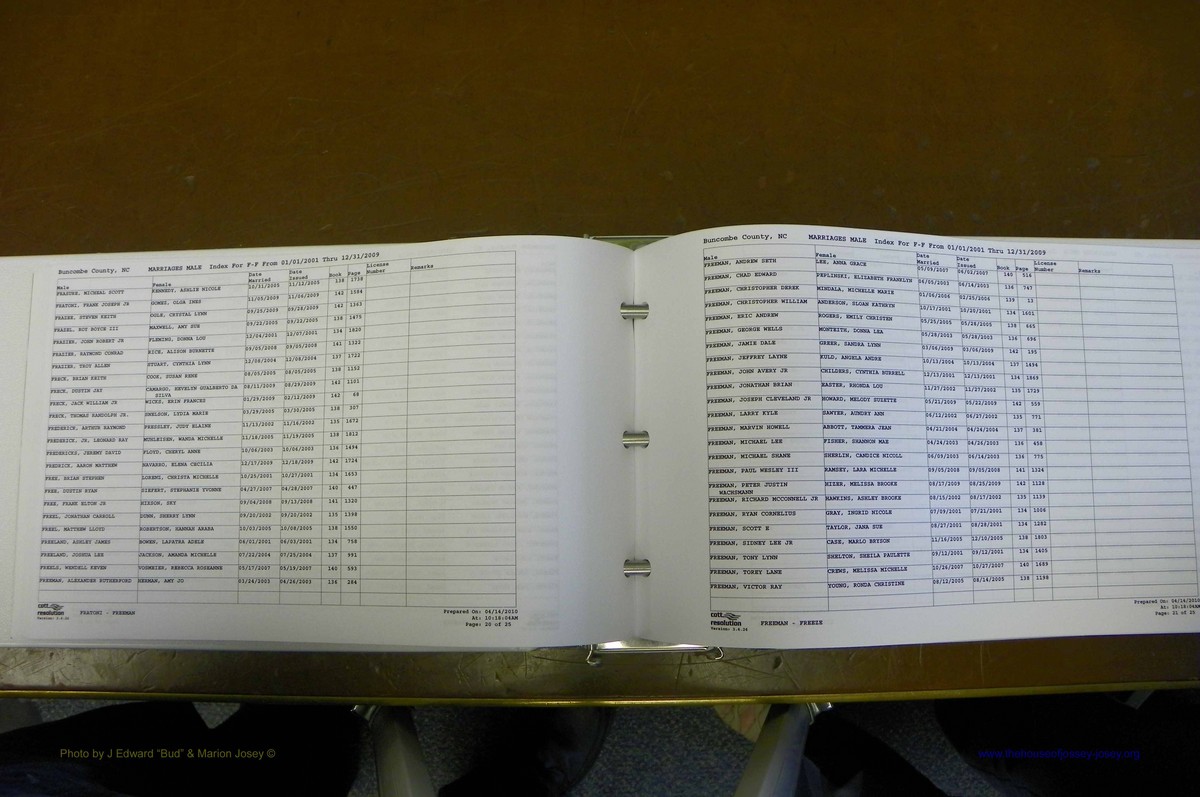 Buncombe County, NC MARRIAGES MALE Index For F-F From 01/01/2001 Thru 12/31/2009
Male Female Date Married Date Issued Book Page License Number Remarks
FRASURE, MICHEAL SCOTT KENNEDY, ASHLIE NICOLE 10/31/2005 11/12/2005 138 1738
FRATONI, FRANK JOSEPH JR GOMEZ, OLGA INES 11/05/2009 11/06/2009 142 1584
FRAZEE, STEVEN KEITH OGLE, CRYSTAL LYNN 09/25/2009 09/28/2009 142 1363
FRAZEL, ROY BOYCE III MAXWELL, AMY SUE 09/23/2005 09/22/2005 138 1475
FRAZIER, JOHN ROBERT JR FLEMING, DONNA LOU 12/04/2001 12/07/2001 134 1820
FRAZIER, RAYMOND CONRAD RICE, ALISON BURNETTE 09/05/2008 09/05/2008 141 1322
FRAZIER, TROY ALLEN STUART, CYNTHIA LYNN 12/08/2004 12/08/2004 137 1722
FRECK, BRIAN KEITH COOK, SUSAN RENE 08/05/2005 08/05/2005 138 1152
FRECK, DUSTIN JAY CAMARGO, KEVELYN GUALBERTO DA SILVA 08/11/2009 08/29/2009 142 1101
FRECK, JACK WILLIAM JR WICKS, ERIN FRANCES 01/29/2009 02/12/2009 142 68
FRECK, THOMAS RANDOLPH JR. SNELSON, LYDIA MARIE 03/29/2005 03/30/2005 138 307
FREDERICK, ARTHUR RAYMOND PRESSLEY, JUDY ELAINE 11/15/2002 11/16/2002 135 1672
FREDERICK, JR, LEONARD RAY MUHLEISEN, WANDA MICHELLE 11/18/2005 11/19/2005 138 1812
FREDERICKS, JEREMY DAVID FLOYD, CHERYL ANNE 10/06/2003 10/06/2003 136 1494
FREDRICK, AARON MATTHEW NAVARRO, ELENA CECILIA 12/17/2009 12/18/2009 142 1724
FREE, BRIAN STEPHEN LOWERS, CHRISTA MICHELLE 10/25/2001 10/27/2001 134 1653
FREE, DUSTIN RYAN SIEFERT, STEPHANIE YVONNE 04/27/2007 04/28/2007 140 447
FREE, FRANK ELTON JR HIRSON, SKY 09/04/2008 09/13/2008 141 1320
FREEL, JONATHAN CARROLL DUNN, SHERRY LYNN 09/20/2002 09/20/2002 135 1398
FREEL, MATTHEW LLOYD ROBERTSON, HANNAH ARABA 10/03/2005 10/08/2005 138 1550
FREELAND, ASHLEY JAMES BOWEN, LAFATRA ADELE 06/01/2001 06/03/2001 134 758
FREELAND, JOSHUA LEE JACKSON, AMANDA MICHELLE 07/22/2004 07/25/2004 137 991
FREELS, WENDELL KEVEN VOSMEIER, REBECCA ROSEANNE 05/17/2007 05/19/2007 140 593
FREEMAN, ALEXANDER RUTHERFORD HERMAN, AMY JO 03/26/2003 04/26/2003 136 284
cott resolution
Version: 3.6.24
FRATONI - FREEMAN
Prepared On: 04/14/2010
At: 10:18:04AM
Page: 20 of 25
Buncombe County, NC MARRIAGES MALE Index For F-F From 01/01/2001 Thru 12/31/2009
Male Female Date Married Date Issued Book Page License Number Remarks
FREEMAN, ANDREW SETH LEE, ANNA GRACE 05/09/2007 06/02/2007 140 516
FREEMAN, CHAD EDWARD PEPLINSKI, ELIZABETH FRANKLYN 06/05/2003 06/14/2003 136 747
FREEMAN, CHRISTOPHER DEREK MINDALA, MICHELLE MARIE 01/06/2006 02/25/2006 139 13
FREEMAN, CHRISTOPHER WILLIAM ANDERSON, SLOAN KATHRYN 10/17/2001 10/20/2001 134 1601
FREEMAN, ERIC ANDREW ROGERS, EMILY CHRISTEN 05/25/2005 05/28/2005 138 665
FREEMAN, GEORGE WELLS MONTEITH, DONNA LEA 05/28/2003 05/28/2003 136 696
FREEMAN, JAMIE DALE GREER, SANDRA LYNN 03/06/2009 03/06/2009 142 195
FREEMAN, JEFFREY LAYNE KULD, ANGELA ANDRE 10/13/2004 10/13/2004 137 1494
FREEMAN, JOHN AVERY JR CHILDERS, CYNTHIA BURRELL 12/13/2001 12/13/2001 134 1869
FREEMAN, JONATHAN BRIAN EASTER, RHONDA LOU 11/27/2002 11/27/2002 135 1729
FREEMAN, JOSEPH CLEVELAND JR HOWARD, MELODY SUZETTE 05/21/2009 05/22/2009 142 559
FREEMAN, LARRY KYLE SAWYER, AUNDRY ANN 06/12/2002 06/27/2002 135 771
FREEMAN, MARVIN HOWELL ABBOTT, TAMMERA JEAN 04/21/2004 04/24/2004 137 381
FREEMAN, MICHAEL LEE FISHER, SHANNON MAE 04/24/2003 04/26/2003 136 458
FREEMAN, MICHAEL SHANE SHERLIN, CANDICE NICOLL 06/09/2003 06/14/2003 136 775
FREEMAN, PAUL WESLEY III RAMSEY, LARA MICHELLE 09/05/2008 09/05/2008 141 1324
FREEMAN, PETER JUSTIN WACHSMANN HIZER, MELISSA BROOKE 08/17/2009 08/25/2009 142 1128
FREEMAN, RICHARD MCCONNELL JR HAWKINS, ASHLEY BROOKE 08/15/2002 08/17/2002 135 1139
FREEMAN, RYAN CORNELIUS GRAY, INGRID NICOLE 07/09/2001 07/21/2001 134 1006
FREEMAN, SCOTT E TAYLOR, JANA SUE 08/27/2001 08/28/2001 134 1282
FREEMAN, SIDNEY LEE JR CASE, MARLO BRYSON 11/16/2005 12/10/2005 138 1803
FREEMAN, TONY LYNN SHELTON, SHEILA PAULETTE 09/12/2001 09/12/2001 134 1405
FREEMAN, TOREY LANE CREWS, MELISSA MICHELLE 10/26/2007 10/27/2007 140 1689
FREEMAN, VICTOR RAY YOUNG, RONDA CHRISTINE 08/12/2005 08/14/2005 138 1198
cott resolution
Version: 3.6.24
FREEMAN - FREEZE
Prepared On: 04/14/2010
At: 10:18:04AM
Page: 21 of 25
Photo by J Edward "Bud" & Marion Josey ©
www.thehouseofjossey-josey.org